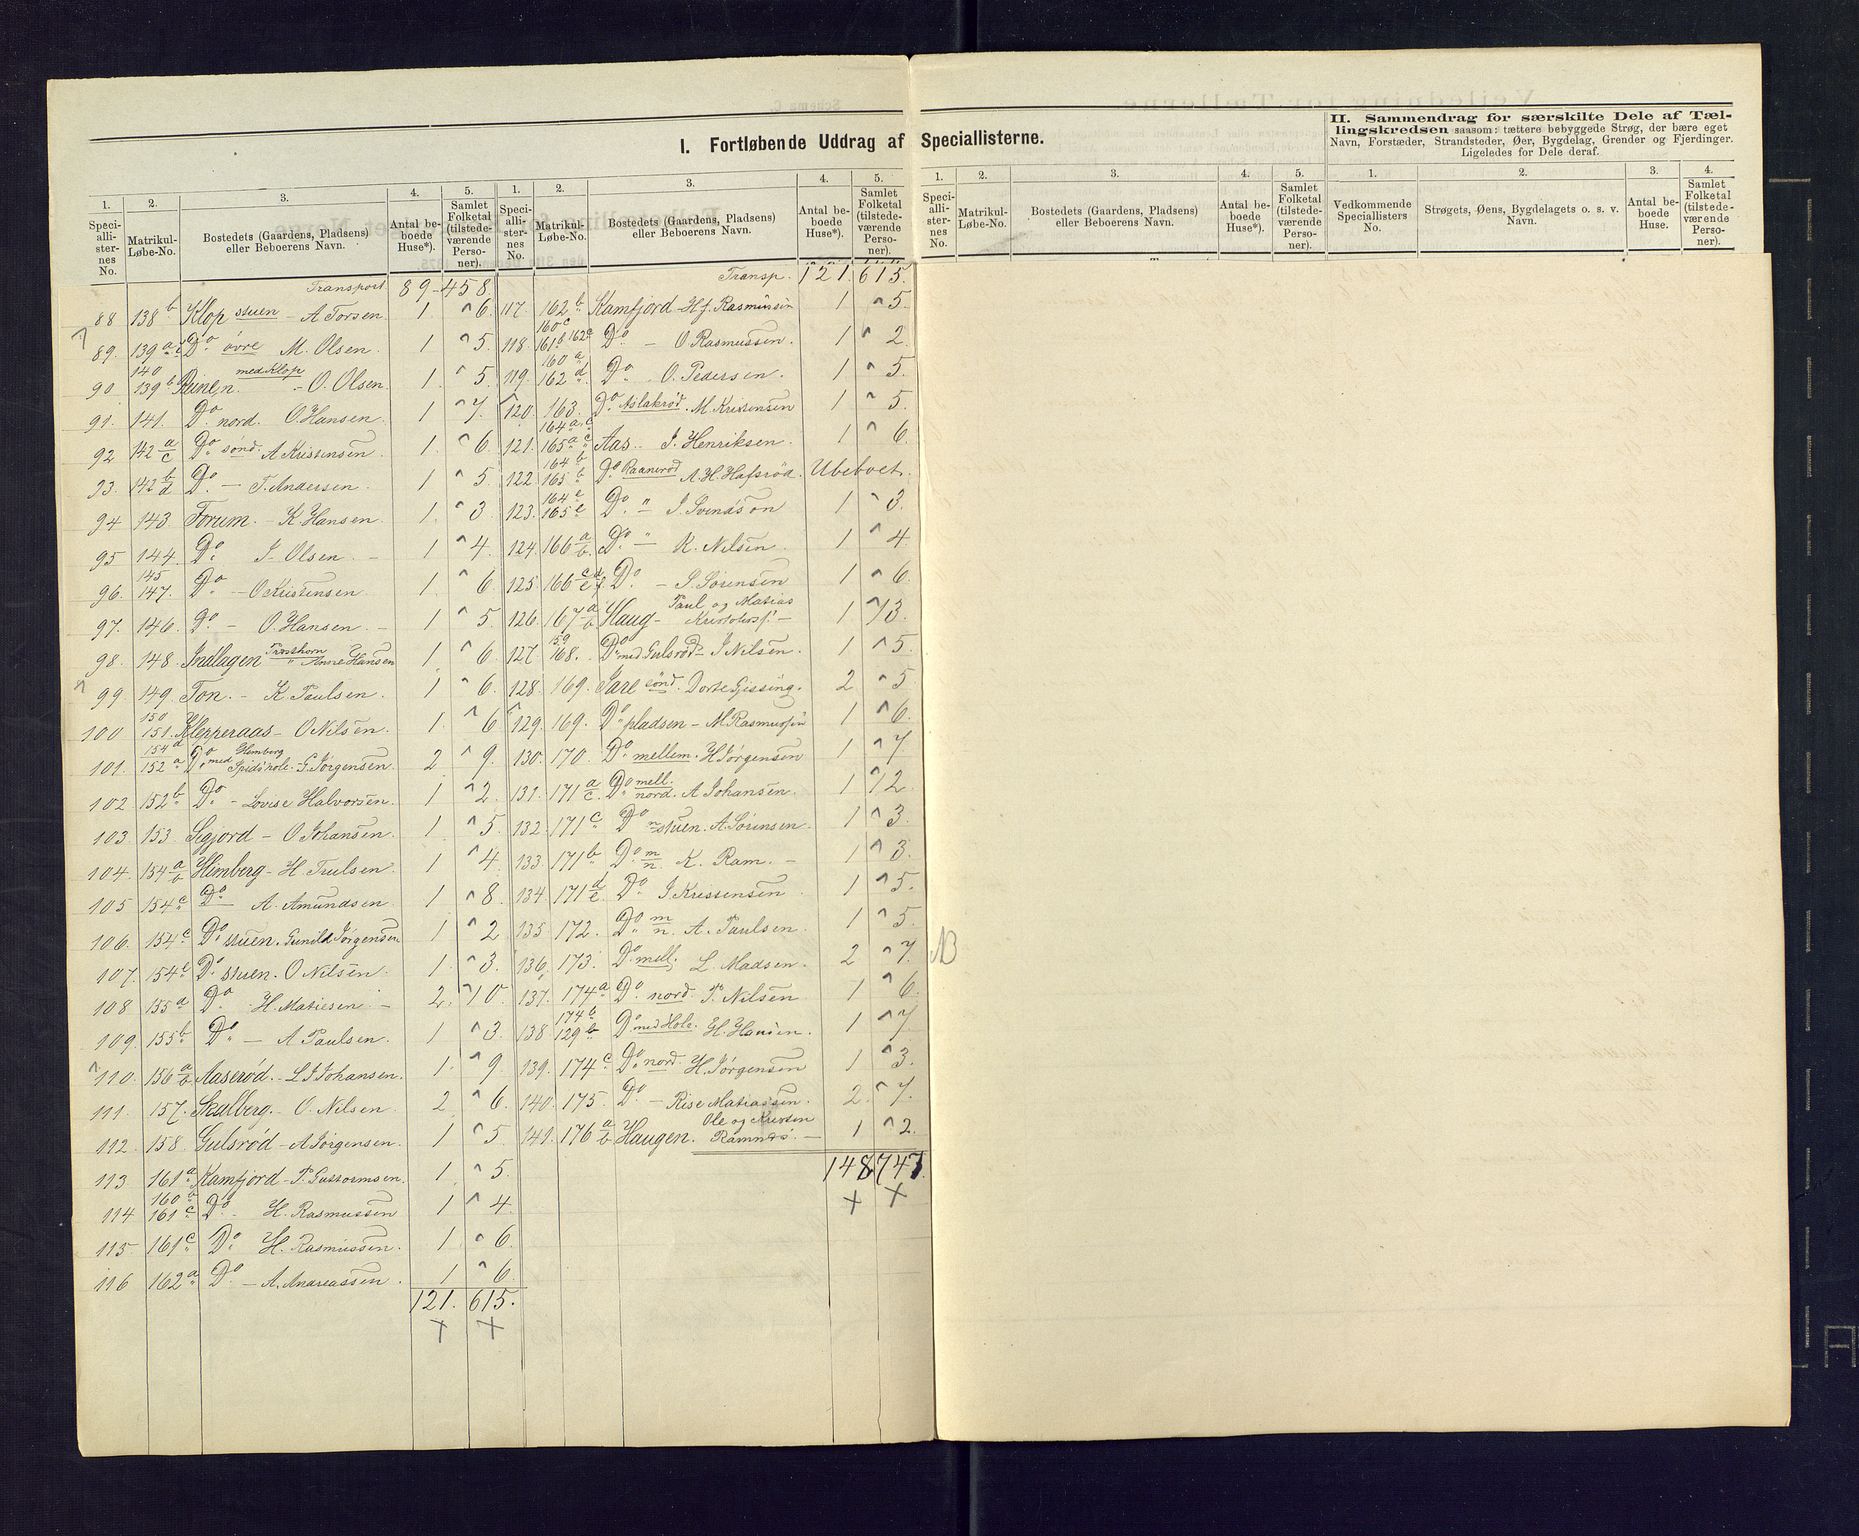 I. Fortløbende Uddrag af Speciallisterne.
II. Sammendrag for særskilte Dele af Tæl-
lingskredsen saasom: tættere bebyggede Strøg, der bære eget
Navn, Forstæder, Strandsteder, Øer, Bygdelag, Grender og Fjerdinger.
Ligeledes for Dele deraf.
1. 2. 3. 4. 5. 1. 2. 3. 4. 5. 1. 2. 3. 4. 5. 1. 2. 3. 4.
Speciallisternes No. Matrikul-Løbe-No. Bostedets (Gaardens, Pladsens) eller Beboerens Navn. Antal beboede Huse*). Samlet Folketal (tilstedeværende Personer).
Speciallisternes No. Matrikul-Løbe-No. Bostedets (Gaardens, Pladsens) eller Beboerens Navn. Antal beboede Huse*). Samlet Folketal (tilstedeværende Personer).
Speciallisternes No. Matrikul-Løbe-No. Bostedets (Gaardens, Pladsens) eller Beboerens Navn. Antal beboede Huse*). Samlet Folketal (tilstedeværende Personer).
Vedkommende Speciallisters No. Strøgets, Øens, Bygdelagets o. s. v. Navn. Antal beboede Huse. Samlet Folketal (tilstedeværende Personer).
Transport 89 - 458.
88 138b Klop stuen - A Torsen 1 6
89. 139a Do øvre M. Olsen. 1 5.
90 140 139b med Klop - O. Olsen 1. 5
91. 141. Do nord. O. Hansen. 1 7.
92 142 a/c Do sønd. A Kristensen 1. 6
93. 142 b/d Do - T. Andersen. 1 5
94 143. Forum. - K. Hansen 1. 3
95 144. Do J. Olsen - 1 4.
96. 145 147. Do - O Kristensen 1 6
97. 146. Do - O. Hansen. - 1 5.
98. 148. Indlagen Anne Hansen 1 6
99. 149. Ton. - K. Paulsen. 1 6.
100 150 151. Klepperaas - O Nilsen. 1. 6
101. 154d 152a Do med Himberg - G. Jørgensen. 2 9.
102 152b Do - Lovise Halvorsen. 1 2
103. 153 - O Johansen. 1 5
104. 154 a/b Himberg - H. Trulsen. 1 4
105 154c Do - A. Amundsen. 1 8
106. 154c Do stuen. Gunild Jørgensen 1 2
107. 154c Do stuen. O Nilsen. 1. 3.
108 155a Do H. Matiesen - 2. 10
109. 155b Do - A Paulsen. 1 3
110. 156 a/b Aaserød. - L J Johansen. 1. 9
111. 157. Skalberg. - O. Nilsen. 2 6.
112. 158. Gulsrød - A Jørgensen. 1 5
113 161a Kamfjord - 1 5.
114 160b 161c Do H. Rasmussen 1 4.
115. 161c Do H. Rasmussen. 1 6.
116 162a Do - A. Andreassen. 1 6
121. 615.
Transp. 121. 615.
117. 162b Kamfjord - H J. Rasmussen 1 5.
118. 160c 161b 162c Do - O Rasmussen. 1 2.
119. 160a 162d Do O. Pedersen. 1 5.
120. 163. Do Aslakrød. M. Kristensen 1 5.
121. 164a,c 165a,c Aas - J. Henriksen. 1 6.
122. 164b 165b Do Raanerød A. H. Hafsrød. Ubeboet.
123. 164e 165e Do " - J. Svendson 1 3.
124. 166 a/b Do " - K. Nilsen. 1 4.
125. 166 Do - J. Sørensen 1 6
126. 167 a/b Haug - Paul og Matias Kristofersf. - 1 13.
127 159 168. Do med Gulsrød - J Nilsen. 1 5
128. 169. Sare sønd. Dorte Gissing. 2 5
129. 169. Do pladsen - M. Rasmussen 1 6.
130. 170. Do mellem. H Jørgensen 1 7
131. 171 a/c Do mell. nord. A Johansen. 1 12.
132. 171c Do n stuen. A. Sørensen. 1 3.
133. 171b Do m/n K. Ram. - 1 3.
134 171 d/e Do J Kristensen 1 5.
135 172. Do m/n A. Paulsen. 1 5.
136. 173. Do mell. L. Madsen. 2 7.
NB
137. 174a Do nord. P. Nilsen 1 6.
138 174b 129b Do med Hole. H. Hansen. 1 7
139. 174c Do nord. H. Jørgensen 1 3.
140. 175. Do - Rise Matiassen. 2. 7.
141. 176 a/b Haugen. Ole og Kirsten Ramnæs. - 1 2.
148 747.